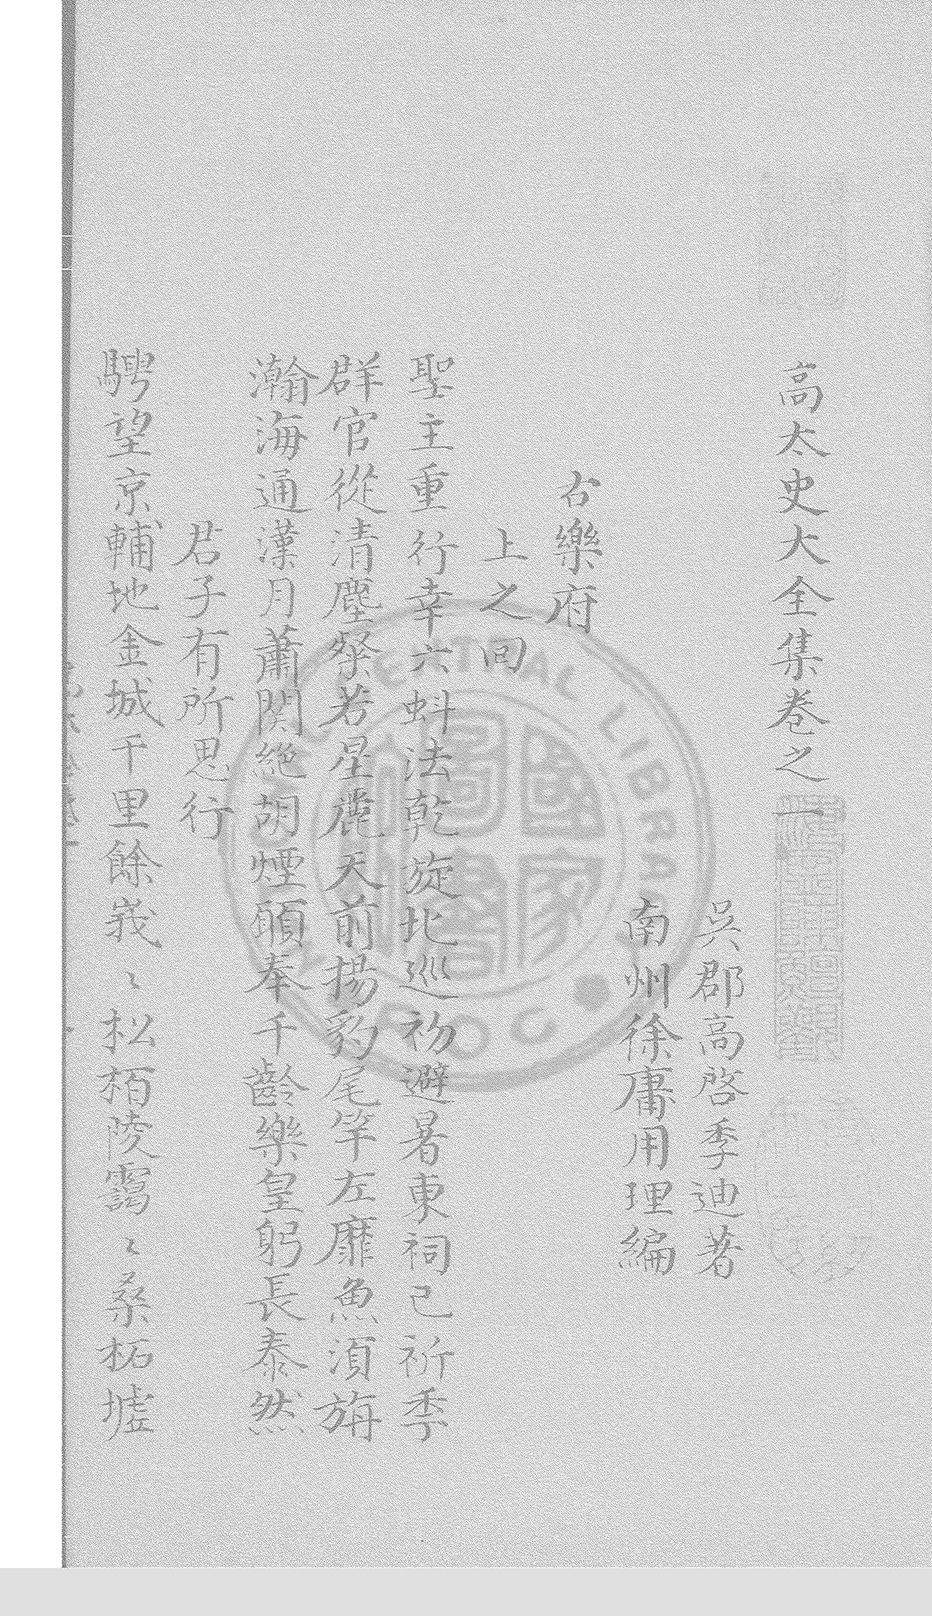 高太史大全集卷之一
吳郡高啓季迪著
南州徐庸用理編
古樂府
上之回
聖主重行幸六蚪法乾旋北巡初避暑東祠已祈季
群官從清塵粲若星麗天前揚豹尾竿左靡魚湏旃
瀚海通漢月蕭関絶胡煙願奉千齡樂皇躬長泰然
君子有所思行
騁望京輔地金城千里餘峩〻松栢陵靄〻桑柘墟
國家圖書
CENTRAL LIBRARY